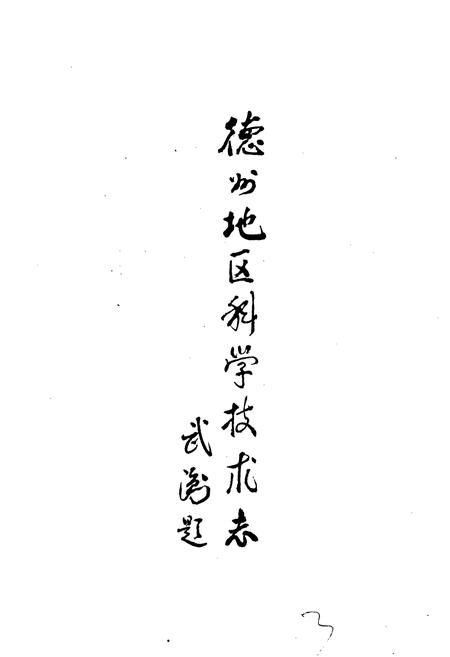 德州地区科学技术志
武衡题
3